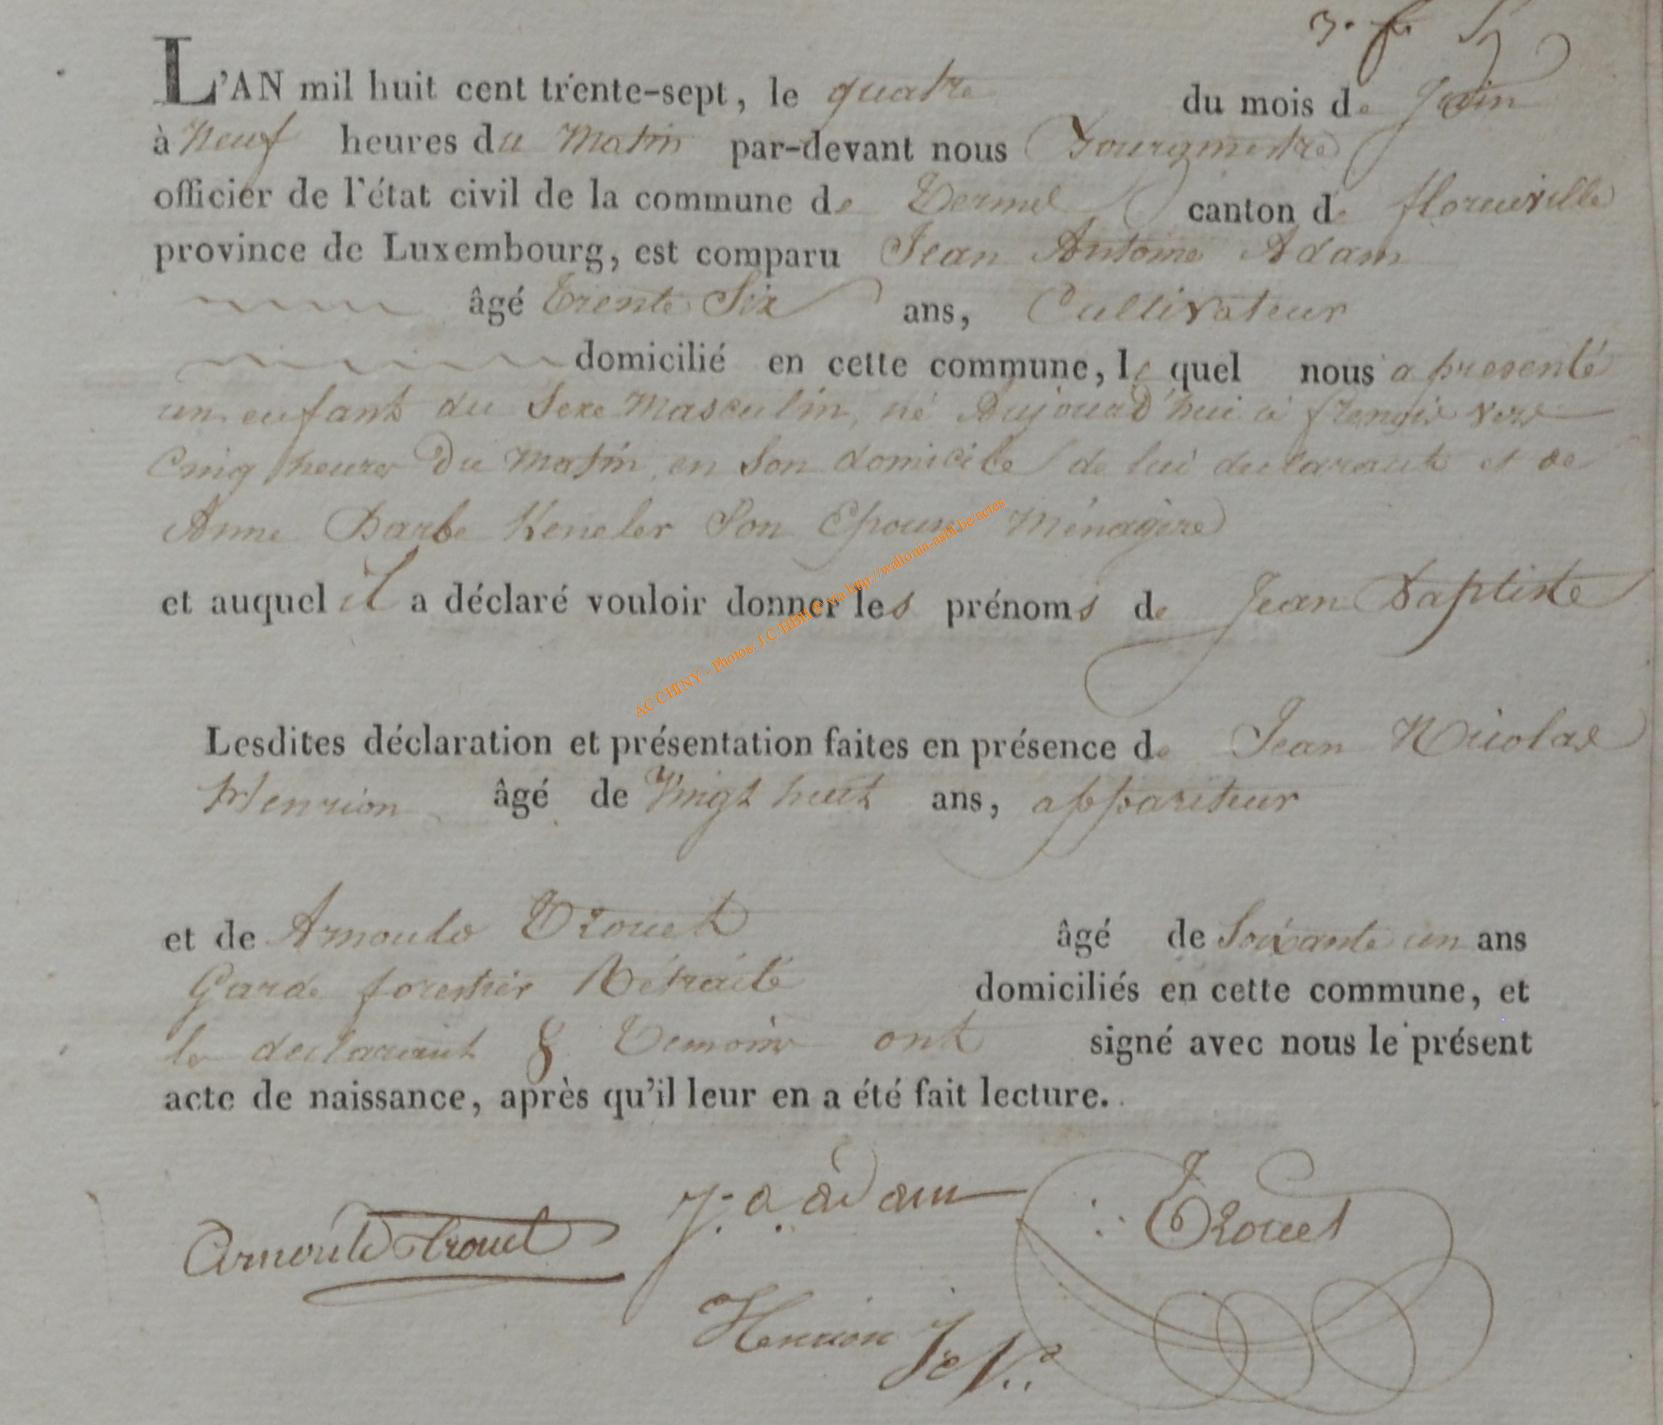 3. f.
L'AN mil huit cent trente-sept, le quatre du mois de Juin
à Neuf heures du Matin par-devant nous Bourgmestre
officier de l'état civil de la commune de Termes canton de florenville
province de Luxembourg, est comparu Jean Antoine Adam
âgé Trente Six ans, Cultivateur
domicilié en cette commune, le quel nous a presenté
un enfant du Sexe Masculin, né Aujourd'hui à frenois vers
Cinq heures Du Matin, en Son domicile de lui declarant et de
Anne Barbe Son Epouse Ménagère
et auquel il a déclaré vouloir donner les prénoms de Jean Baptiste
Lesdites déclaration et présentation faites en présence de Jean Nicolas
Henrion âgé de Vingt huit ans, appariteur
et de Arnould Trouet âgé de Soixante un ans
Garde forestier Rétraité domiciliés en cette commune, et
le declarant & Temoins ont signé avec nous le présent
acte de naissance, après qu'il leur en a été fait lecture.
Arnould trouet j. a adam Trouet
Henrion
AC CHINY - Photos: J.C. via http://wallonia-asbl.be/actes